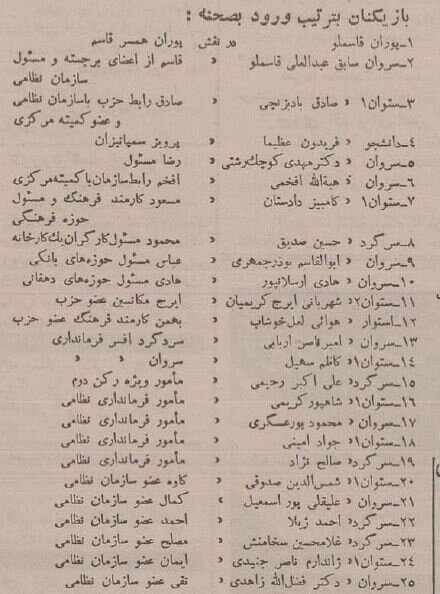 بازیکنان بترتیب ورود بصحنه :
۱ـ پوران قاسملو در نقش پوران همسر قاسم
۲ـ سروان سابق عبدالعلی قاسملو » قاسم از اعضای برجسته و مسئول
سازمان نظامی
۳ـ ستوان۱ » صادق بادبزنچی » صادق رابط حزب باسازمان نظامی
و عضو کمیته مرکزی
۴ـ دانشجو » فریدون عظیما » پرویز سمپاتیزان
۵ـ سروان » دکتر مهدی کوچک رشتی » رضا مسئول
۶ـ سروان » هبةالله افخمی » افخم رابط سازمان با کمیته مرکزی
۷ـ ستوان۱ » کامبیز دادستان » مسعود کارمند فرهنگ و مسئول
حوزه فرهنگی
۸ـ سرگرد » حسین صدیق » محمود مسئول کارگران یک کارخانه
۹ـ سروان » ابوالقاسم بوذرجمهری » عباس مسئول حوزه‌های بانکی
۱۰ـ سروان » هادی ارسلانپور » هادی مسئول حوزه‌های دهقانی
۱۱ـ ستوان۲ » شهربانی ایرج کریمیان » ایرج مکانسین عضو حزب
۱۲ـ استوار » هوائی لعل خوشاب » بهمن کارمند فرهنگ عضو حزب
۱۳ـ سروان » امیرناصر اربابی » سردگرد افسر فرمانداری
۱۴ـ ستوان۱ » کاظم سهیل » سروان » »
۱۵ـ سرگرد » علی اکبر رحیمی » مأمور ویژه رکن دوم
۱۶ـ ستوان۱ » شاهپور کریمی » مأمور فرمانداری نظامی
۱۷ـ سروان » محمود پورعسگری » مأمور فرمانداری نظامی
۱۸ـ ستوان۱ » جواد امینی » مأمور فرمانداری نظامی
۱۹ـ سرگرد » صالح نژاد » مأمور فرمانداری نظامی
۲۰ـ ستوان۱ » شمس‌الدین صدوقی » کاوه عضو سازمان نظامی
۲۱ـ سروان » علیقلی پور اسمعیل » کمال عضو سازمان نظامی
۲۲ـ سرگرد » احمد ژیلا » احمد عضو سازمان نظامی
۲۳ـ سرگرد » غلامحسین سخامنش » مصلح عضو سازمان نظامی
۲۴ـ ستوان۱ » ژاندارم ناصر جنیدی » ایمان عضو سازمان نظامی
۲۵ـ سروان » دکتر فضل‌الله زاهدی » تقی عضو سازمان نظامی